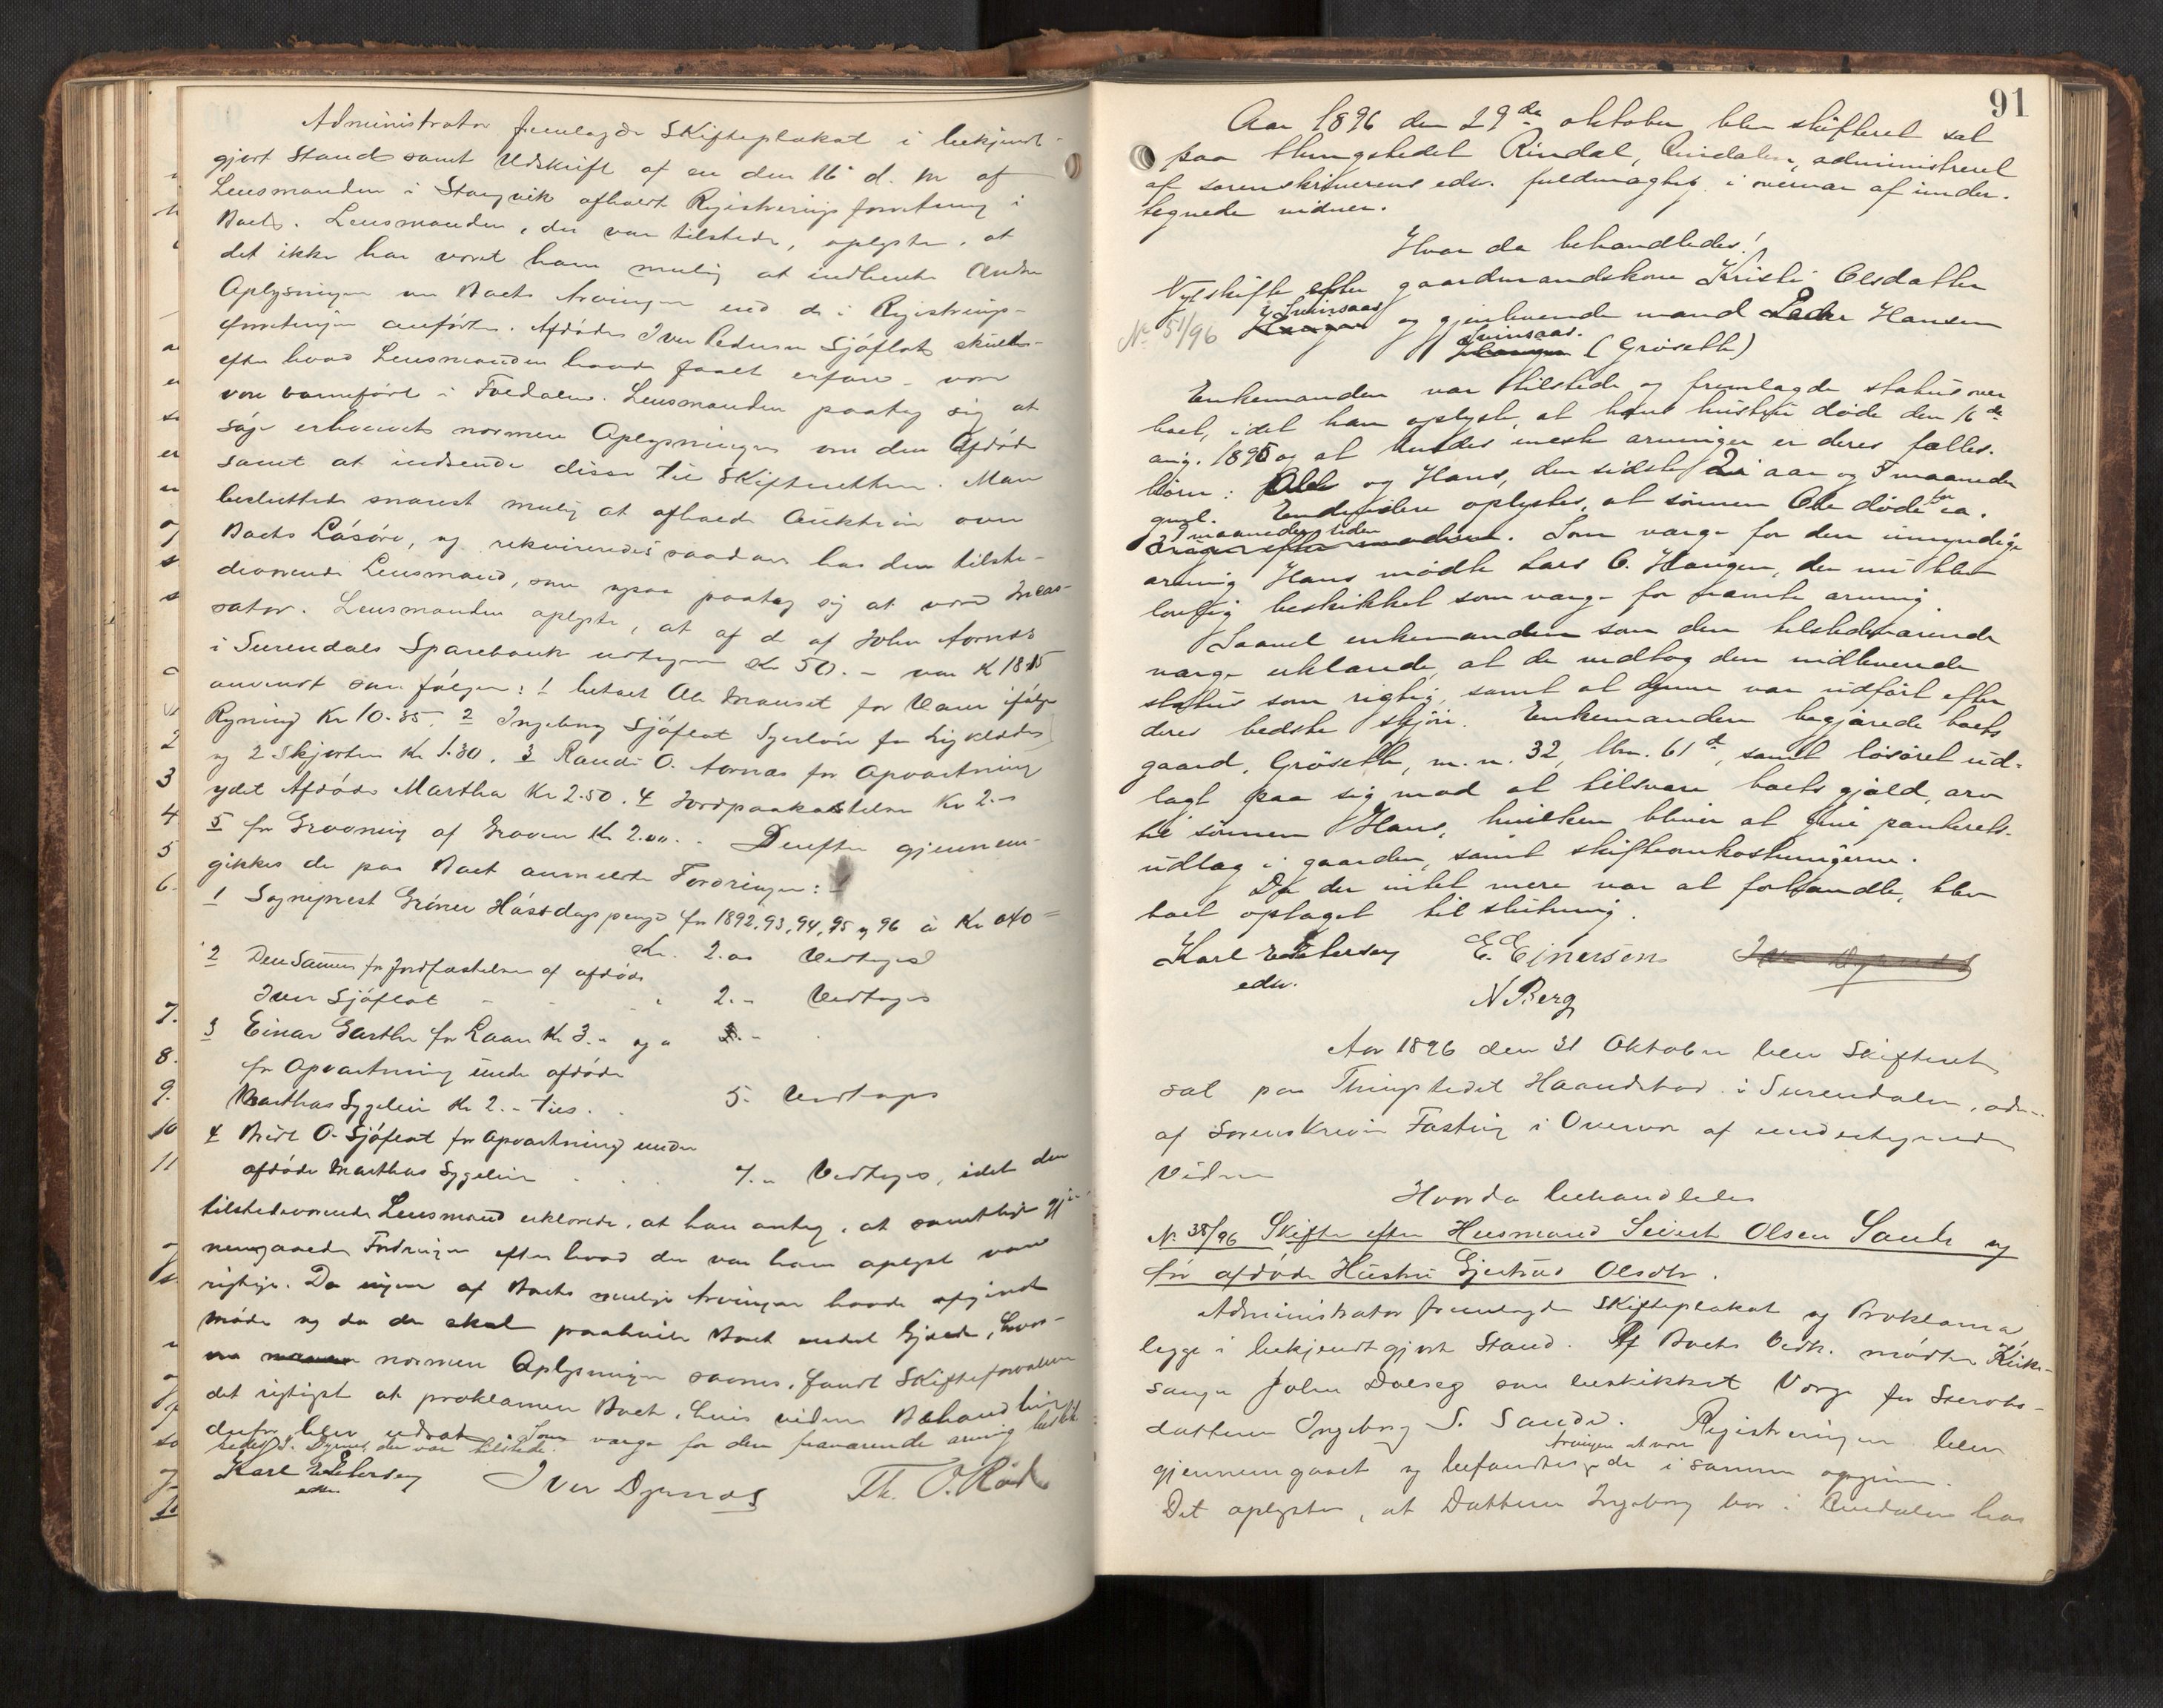 Administrator fremlagde Skifteplakat i bekjendt-
gjort Stand samt Udskrift af en den 16' d. M. af
Lensmanden i Stangvik afholdt Registreringsforretning i
Boet. Lensmanden, der var tilstede, oplyste, at
det ikke har været ham mulig at indhente andre
Oplysninger om Boets Arvinger end de i Registrerings-
forretningen anførte. Afdøde Iver Pedersen Sjøflot skulde
efter hvad Lensmanden havde faaet erfare
være barnefødt i Todalen. Lensmanden paatog sig at
søge erhvervet nærmere Oplysninger om den Afdøde
samt at indsende disse til Skifteretten. Man
besluttede snarest mulig at afholde Auktion over
Boets Løsøre, og rekvireredes saadan hos den tilste-
deværende Lensmand, som ogsaa paatog sig at være Incas-
sator. Lensmanden oplyste, at af de af John Aornes
i Surendals Sparebank udtagne Kr 50.- var K 18.15
anvendt som følger: 1 betalt Ole Mauset for Varer ifølge
Regning Kr 10.35. 2 Ingeborg Sjøflot Syerløn for Ligklæder
og 2 Skjorter Kr 1.30. 3 Randi O. Aornes for Opvartning
ydet Afdøde Martha Kr 2.50. 4 Jordpaakastelse Kr 2.-
5 for Gravning af Graven Kr 2.00. Derefter gjennem-
gikkes de paa Boet anmeldte Fordringer:
1 Sogneprest Grøner Høstdagspenge for 1892, 93, 94, 95 og 96 à Kr 0.40 =
Kr. 2.00 Vedtoges
2 Den Samme for Jordfæstelse af afdøde
Iver Sjøflot - - " 2.- Vedtoges
3 Einar Garthe for Laan Kr 3.- og
for Opvartning under afdøde
Marthas Sygeleie Kr 2.- tils. 5.- Vedtoges
4 Brit O. Sjøflot for Opvartning under
afdøde Marthas Sygeleie . . . 7.- Vedtoges, idet den
tilstedeværende Lensmand erklærede, at han antog, at samtlige gjen-
nemgaaede Fordringer efter hvad der var ham oplyst vare
rigtige. Da ingen af Boets mulige Arvinger havde afgivet
Møde og da der skal paahvile Boet endel Gjæld, hvor-
om nærmere Oplysninger savnes, fandt Skifteforvalteren
det rigtigst at proklamere Boet, hvis videre Behandling
derfor blev udsat. Som værge for den fraværende arving beskik-
kedes I. Dyrnes, der var tilstede.
Karl E Petersen Iver Dyrnes Th. O. Rød
edsv.
91
Aar 1896 den 29de oktober blev skifteret sat
paa thingstedet Rindal, Rindalen, administreret
af sorenskriverens edsv. fuldmægtig i overvær af under-
tegnede vidner.
Hvor da behandledes:
Nyt skifte efter gaardmandskone Kristi Olsdatter
i Svinsaas
No 51/96 Haugen og gjenlevende mand Peder Hansen
Svinsaas.
Haugen (Grøseth)
Enkemanden var tilstede og fremlagde status over
boet, idet han oplyste, at hans hustru døde den 16de
aug. 1895 og at hendes eneste arvinger er deres fælles-
børn: Ole og Hans, den sidste 2½ aar og 7 maaneder
gml. Endvidere oplystes, at sønnen Ole døde for ca.
3 maaneder siden
3 uger efter moderen. Som værge for den umyndige
arving Hans mødte Lars O. Haugen, der nu blev
lovlig beskikket som værge for nævnte arving.
Saavel enkemanden som den tilstedeværende
værge erklærede, at de vedtog den vedlevende
status som rigtig, samt at denne var udført efter
deres bedste skjøn. Enkemanden begjærede boets
gaard, Grøseth, m. n. 32, lbn. 61d, samt løsøret ud-
lagt paa sig mod at tilsvare boets gjæld, arv
til sønnen Hans, hvilken bliver at give panterets-
udlag i gaarden, samt skifteomkostningerne.
Da der intet mere var at forhandle, blev
boet optaget til slutning.
Karl E Petersen E. Einersen Iver Dyrnes
edsv.
N Berg
Aar 1896 den 31 Oktober blev Skifteret
sat paa Thingstedet Haandstad i Surendalen, adm.
af Sorenskriver Fasting i Overvær af undertegnede
Vidner
Hvorda behandledes
No 38/96 Skifte efter Husmand Sivert Olsen Sande og
før afdøde Hustru Gjertrud Olsdtr.
Administrator fremlagde Skifteplakat og Proklama
begge i bekjendtgjort Stand. Af Boets Vedk. mødte Kirke-
sanger John Dalseg som beskikket Værge for Stervbo-
datteren Ingeborg S. Sande. Registreringen blev
Arvinger at være
gjennemgaaet og befandtes de i samme opgivne.
Det oplystes, at Datteren Ingeborg bor i Rindalen hos